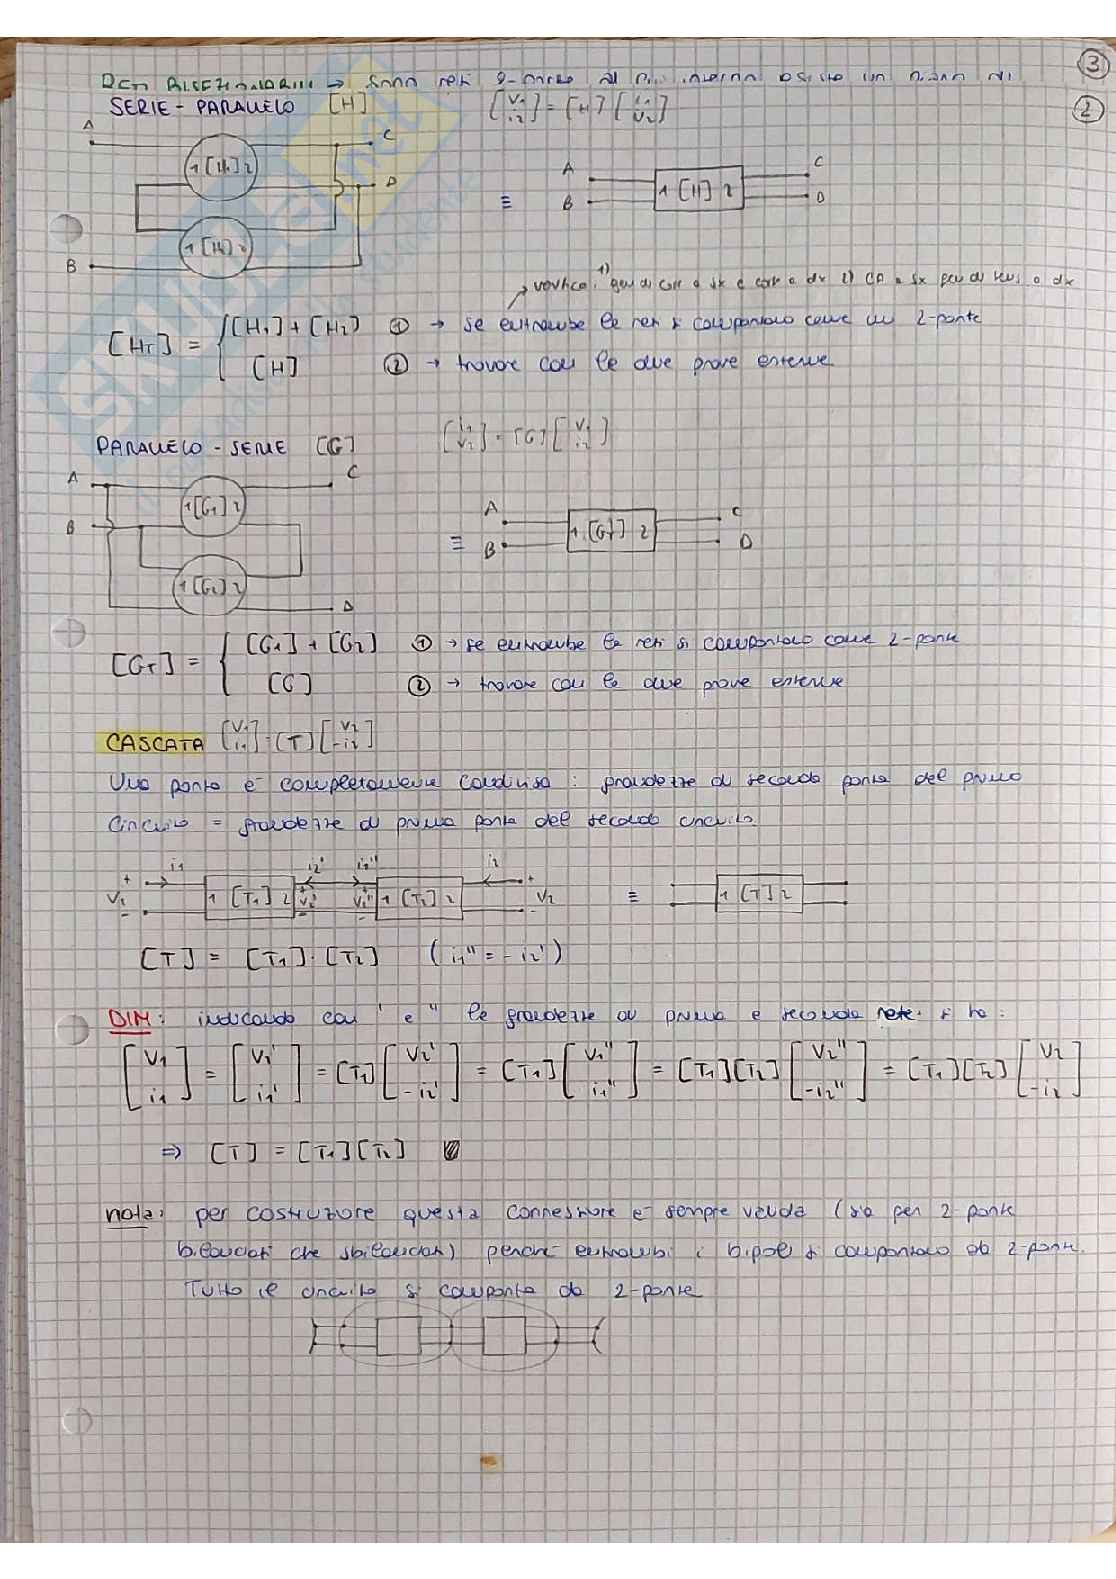 ③
RETI BISEZIONABILI → sono reti 2-porte al cui interno esiste un piano di
SERIE - PARALLELO [H] [V1 i2] = [H] [i1 V2]
②
A C
1 [H1] 2
D
1 [H2] 2
B
≡ A B 1 [H] 2 C D
verifica: 1) gen di corr a sx e corr a dx 2) CA a sx gen di tens a dx
[HT] = { [H1] + [H2] ① → se entrambe le reti si comportano come un 2-porte
[H] ② → trovare con le due prove esterne
PARALLELO - SERIE [G] [i1 V2] = [G] [V1 i2]
A C
1 [G1] 2
B
1 [G2] 2
D
≡ A B 1 [GT] 2 C D
[GT] = { [G1] + [G2] ① → se entrambe le reti si comportano come 2-porte
[G] ② → trovare con le due prove esterne
CASCATA [V1 i1] = [T] [V2 -i2]
Una porta è completamente condivisa: grandezze di seconda porta del primo
circuito = grandezze di prima porta del secondo circuito.
i1 i2' i1'' i2
+ V1 - 1 [T1] 2 + V2' - + V1'' - 1 [T2] 2 + V2 - ≡ 1 [T] 2
[T] = [T1] · [T2] (i1'' = - i2')
DIM: indicando con ' e '' le grandezze di prima e seconda rete. si ha:
[V1 i1] = [V1' i1'] = [T1] [V2' -i2'] = [T1] [V1'' i1''] = [T1][T2] [V2'' -i2''] = [T1][T2] [V2 -i2]
⇒ [T] = [T1][T2]
nota: per costruzione questa connessione è sempre valida (sia per 2 porte
bilanciati che sbilanciati) perchè entrambi i bipoli si comportano da 2-porte.
Tutto il circuito si comporta da 2-porte